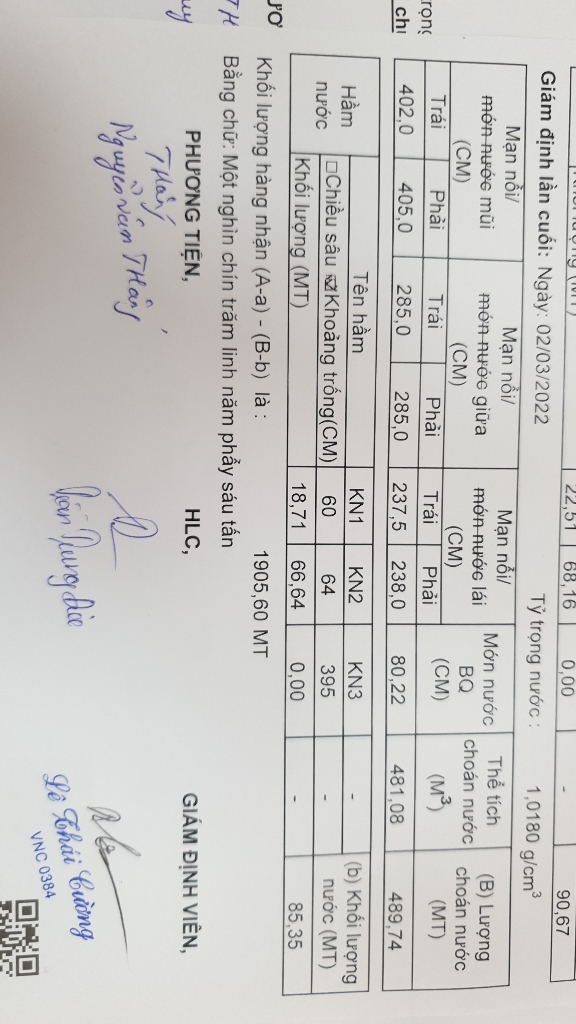 22,51 68,16 0,00 - 90,67
Giám định lần cuối: Ngày: 02/03/2022 Tỷ trọng nước : 1,0180 g/cm³
Mạn nổi/ mớn nước mũi (CM) Mạn nổi/ mớn nước giữa (CM) Mạn nổi/ mớn nước lái (CM) Mớn nước BQ (CM) Thể tích choán nước (M³) (B) Lượng choán nước (MT)
Trái Phải Trái Phải Trái Phải
402,0 405,0 285,0 285,0 237,5 238,0 80,22 481,08 489,74
Hầm nước Tên hầm KN1 KN2 KN3 - (b) Khối lượng nước (MT)
☐Chiều sâu ☑Khoảng trống(CM) 60 64 395 -
Khối lượng (MT) 18,71 66,64 0,00 - 85,35
Khối lượng hàng nhận (A-a) - (B-b) là : 1905,60 MT
Bằng chữ: Một nghìn chín trăm linh năm phẩy sáu tấn
PHƯƠNG TIỆN, HLC, GIÁM ĐỊNH VIÊN,
Thắng
Nguyễn Văn Thắng
Lê Thái Cường
VNC 0384